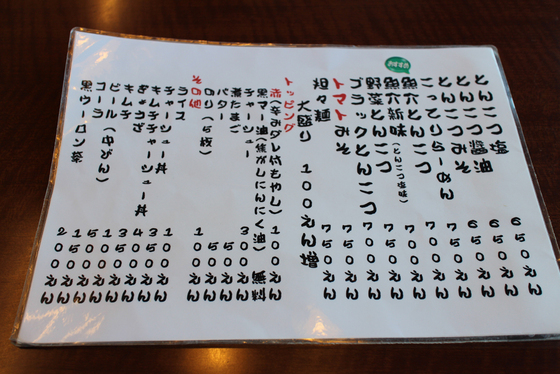 おすすめ
とんこつ塩 650えん
とんこつ醤油 650えん
とんこつみそ 650えん
こってりらーめん 750えん
魚介とんこつ 700えん
魚介新味(とんこつ塩味) 700えん
野菜とんこつ 700えん
ブラックとんこつ 700えん
トマトみそ 750えん
坦々麺 750えん
大盛り 100えん増
トッピング
赤(辛みダレ付もやし) 100えん
黒マー油(焦がしにんにく油) 無料
チャーシュー 300えん
煮たまご 50えん
バター 50えん
のり(5枚) 100えん
その他
ライス 100えん
チャーシュー丼 350えん
キムチチャーシュー丼 400えん
ぎょうざ 300えん
キムチ 150えん
ビール(中びん) 500えん
コーラ 150えん
黒ウーロン茶 200えん